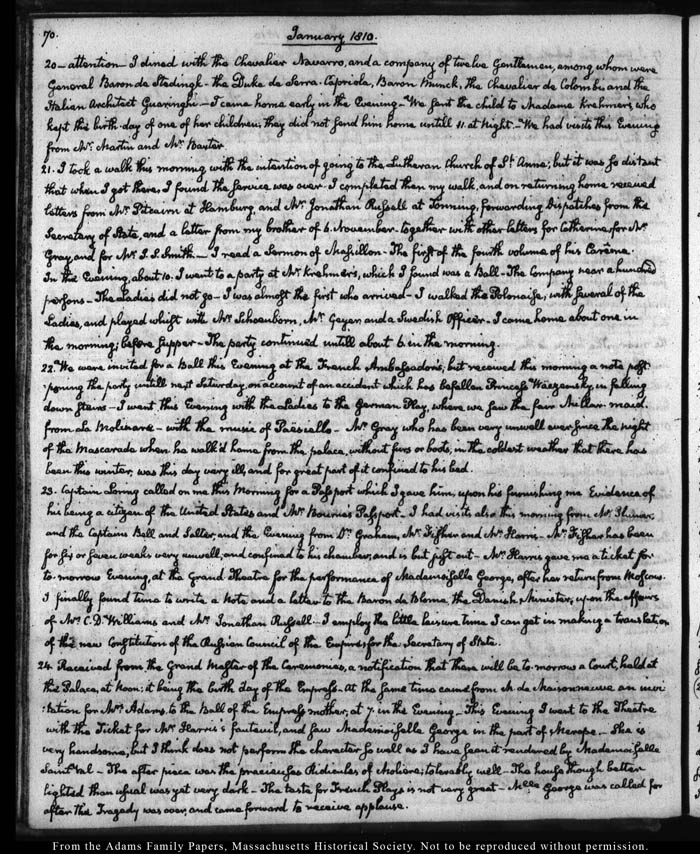 70.
January 1810.
20 - attention - I dined with the Chevalier Navarro, and a company of twelve Gentlemen, among whom were
General Baron de Stedingk - the Duke de Serra-Capriola, Baron Munck, the Chevalier de Colombi and the
Italian Architect Guaringhi - I came home early in the Evening - We sent the child to Madame Krehmer's, who
kept the birth-day of one of her children; they did not send him home untill 11. at Night. - We had visits this Evening
from Mr. Martin and Mr. Baxter.
21. I took a walk this morning with the intention of going to the Lutheran Church of St. Anne; but it was so distant
that when I got there, I found the service was over - I completed then my walk, and on returning home received
letters from Mr. Pitcairn at Hamburg, and Mr. Jonathan Russell at Tonning, forwarding dispatches from the
Secretary of State, and a letter from my brother of 6. November - together with other letters for Catherine, for Mr.
Gray, and for Mr. J. S. Smith - I read a Sermon of Massillon - The first of the fourth volume of his Carême.
In the Evening, about 10. I went to a party at Mr. Krehmer's, which I found was a Ball - The Company near a hundred
persons - The Ladies did not go - I was almost the first who arrived - I walked the Polonaise, with several of the
Ladies, and played whist with Mr. Schoenborn, Mr. Geyer, and a Swedish Officer - I came home about one in
the morning; before supper - The party continued untill about 6 in the morning.
22. We were invited for a Ball this Evening at the French Ambassador's; but received this morning a note post-
:poning the party untill next Saturday, on account of an accident which has befallen Princess Wiazemsky, in falling
down stairs - I went this Evening with the Ladies to the German Play, where we saw the fair Miller-maid.
from La Molinara - with the music of Paësiello - Mr. Gray who has been very unwell ever since the night
of the Mascarade when he walk'd home from the palace, without furs or boots, in the coldest weather that there has
been this winter, was this day very ill, and for great part of it confined to his bed.
23. Captain Loring called on me this Morning for a Passport which I gave him, upon his furnishing me Evidence of
his being a citizen of the United States and Mr. Bourne's Passport - I had visits also this morning from
and the Captains Ball and Salter; and the Evening from Dr. Graham, Mr. Fisher and Mr. Harris - Mr. Fisher has been
for six or seven weeks very unwell, and confined to his chamber, and is but just out - Mr. Harris gave me a ticket for
to-morrow Evening, at the Grand Theatre for the performance of Mademoiselle George, after her return from Moscow.
I finally found time to write a Note and a letter to the Baron de Blome, the Danish Minister, upon the affairs
of Mr. C. D. Williams and Mr. Jonathan Russell - I employ the little leisure time I can get in making a translation
of the new Constitution of the Russian Council of the Empire, for the Secretary of State.
24. Received from the Grand Master of the Ceremonies, a notification that there will be to-morrow a Court, held at
the Palace, at Noon; it being the birth day of the Empress - At the same time came from M. de Maisonneuve an invi-
:tation for Mrs. Adams, to the Ball of the Empress mother, at 7. in the Evening - This Evening I went to the Theatre
with the Ticket for Mr. Harris's fauteuil, and saw Mademoiselle George in the part of Merope - She is
very handsome, but I think does not perform the character so well as I have seen it rendered by Mademoiselle
Saint-Val - The after piece was the precieuses Ridicules of Moliere; tolerably well - The house though better
lighted than usual was yet very dark - The taste for French Plays is not very great - Melle. George was called for
after the Tragedy was over, and came forward to receive applause.
From the Adams Family Papers, Massachusetts Historical Society. Not to be reproduced without permission.